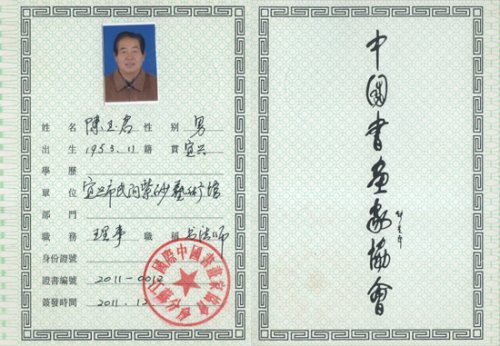 姓名 陳玉君 性別 男
出生 1953.11 籍貫 宜兴
學歷
單位 宜兴市民间紫砂藝術馆
部門
職務 理事 職稱
身份證號
證書編號 2011-0012
簽發時間 2011.12
中國書画家協會